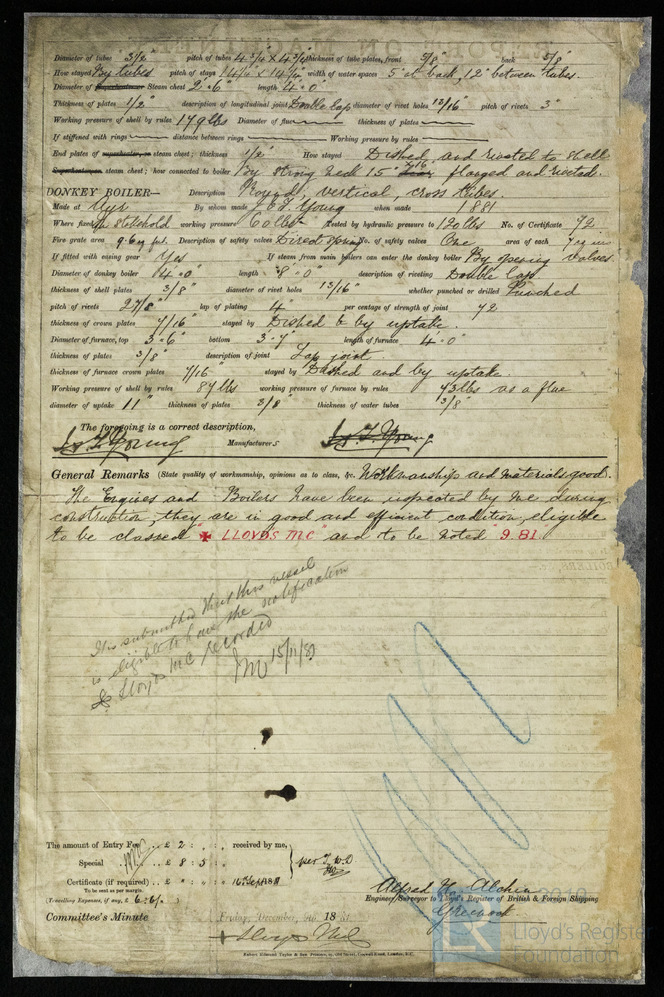 Diameter of tubes 3 1/2" pitch of tubes 4 3/4 x 4 3/4 thickness of tube plates, front 5/8" back 5/8"
How stayed By tubes pitch of stays 14 1/2 x 14 1/2" width of water spaces 5" at back, 12" between tubes.
Diameter of Superheater or Steam chest 2'-6" length 4'-0"
Thickness of plates 1/2" description of longitudinal joint Double Lap diameter of rivet holes 13/16" pitch of rivets 3"
Working pressure of shell by rules 179 lbs Diameter of flue thickness of plates
If stiffened with rings distance between rings Working pressure by rules
End plates of superheater, or steam chest; thickness 1/2" How stayed Dished and riveted to shell
Superheater or steam chest; how connected to boiler By strong neck 15" flanged and riveted.
DONKEY BOILER— Description Round, vertical, cross tubes.
Made at Ayr By whom made J & T Young when made 1881
Where fixed In stokehold working pressure 60 lbs tested by hydraulic pressure to 120 lbs No. of Certificate 72
Fire grate area 9.6 sq ft. Description of safety valves Direct spring No. of safety valves One area of each 7 sq in
If fitted with easing gear Yes If steam from main boilers can enter the donkey boiler By opening valves.
Diameter of donkey boiler 4'-0" length 8'-0" description of riveting Double Lap
thickness of shell plates 3/8" diameter of rivet holes 13/16" whether punched or drilled Punched
pitch of rivets 2 7/8" lap of plating 4" per centage of strength of joint 72
thickness of crown plates 7/16" stayed by Dished & by uptake.
Diameter of furnace, top 3'-6" bottom 3'-7" length of furnace 4'-0"
thickness of plates 3/8" description of joint Lap joint.
thickness of furnace crown plates 7/16" stayed by Dished and by uptake.
Working pressure of shell by rules 87 lbs working pressure of furnace by rules 73 lbs as a flue
diameter of uptake 11" thickness of plates 3/8" thickness of water tubes 3/8"
The foregoing is a correct description,
J & T Young Manufacturers J & T Young.
General Remarks (State quality of workmanship, opinions as to class, &c. Workmanship and materials good.
The Engines and Boilers have been inspected by me during
construction, they are in good and efficient condition, eligible
to be classed "✠ LLOYDS MC" and to be noted 9.81.
It is submitted that this vessel
is eligible to have the notification
✠ Lloyds MC recorded
JM 15/11/81
The amount of Entry Fee .. £ 2 : : received by me,
Special .. £ 8 : 5 :
Certificate (if required) .. £ : : 16 Sept 1881
To be sent as per margin.
(Travelling Expenses, if any, £ 6:6/.)
Alfred H. Alchin
Engineer Surveyor to Lloyd's Register of British & Foreign Shipping
Greenock
Committee's Minute Friday, December, 1881
✠ Lloyds MC
Robert Edmund Taylor & Son Printers, 19, Old Street, Goswell Road, London, E.C.
Lloyd's Register
Foundation